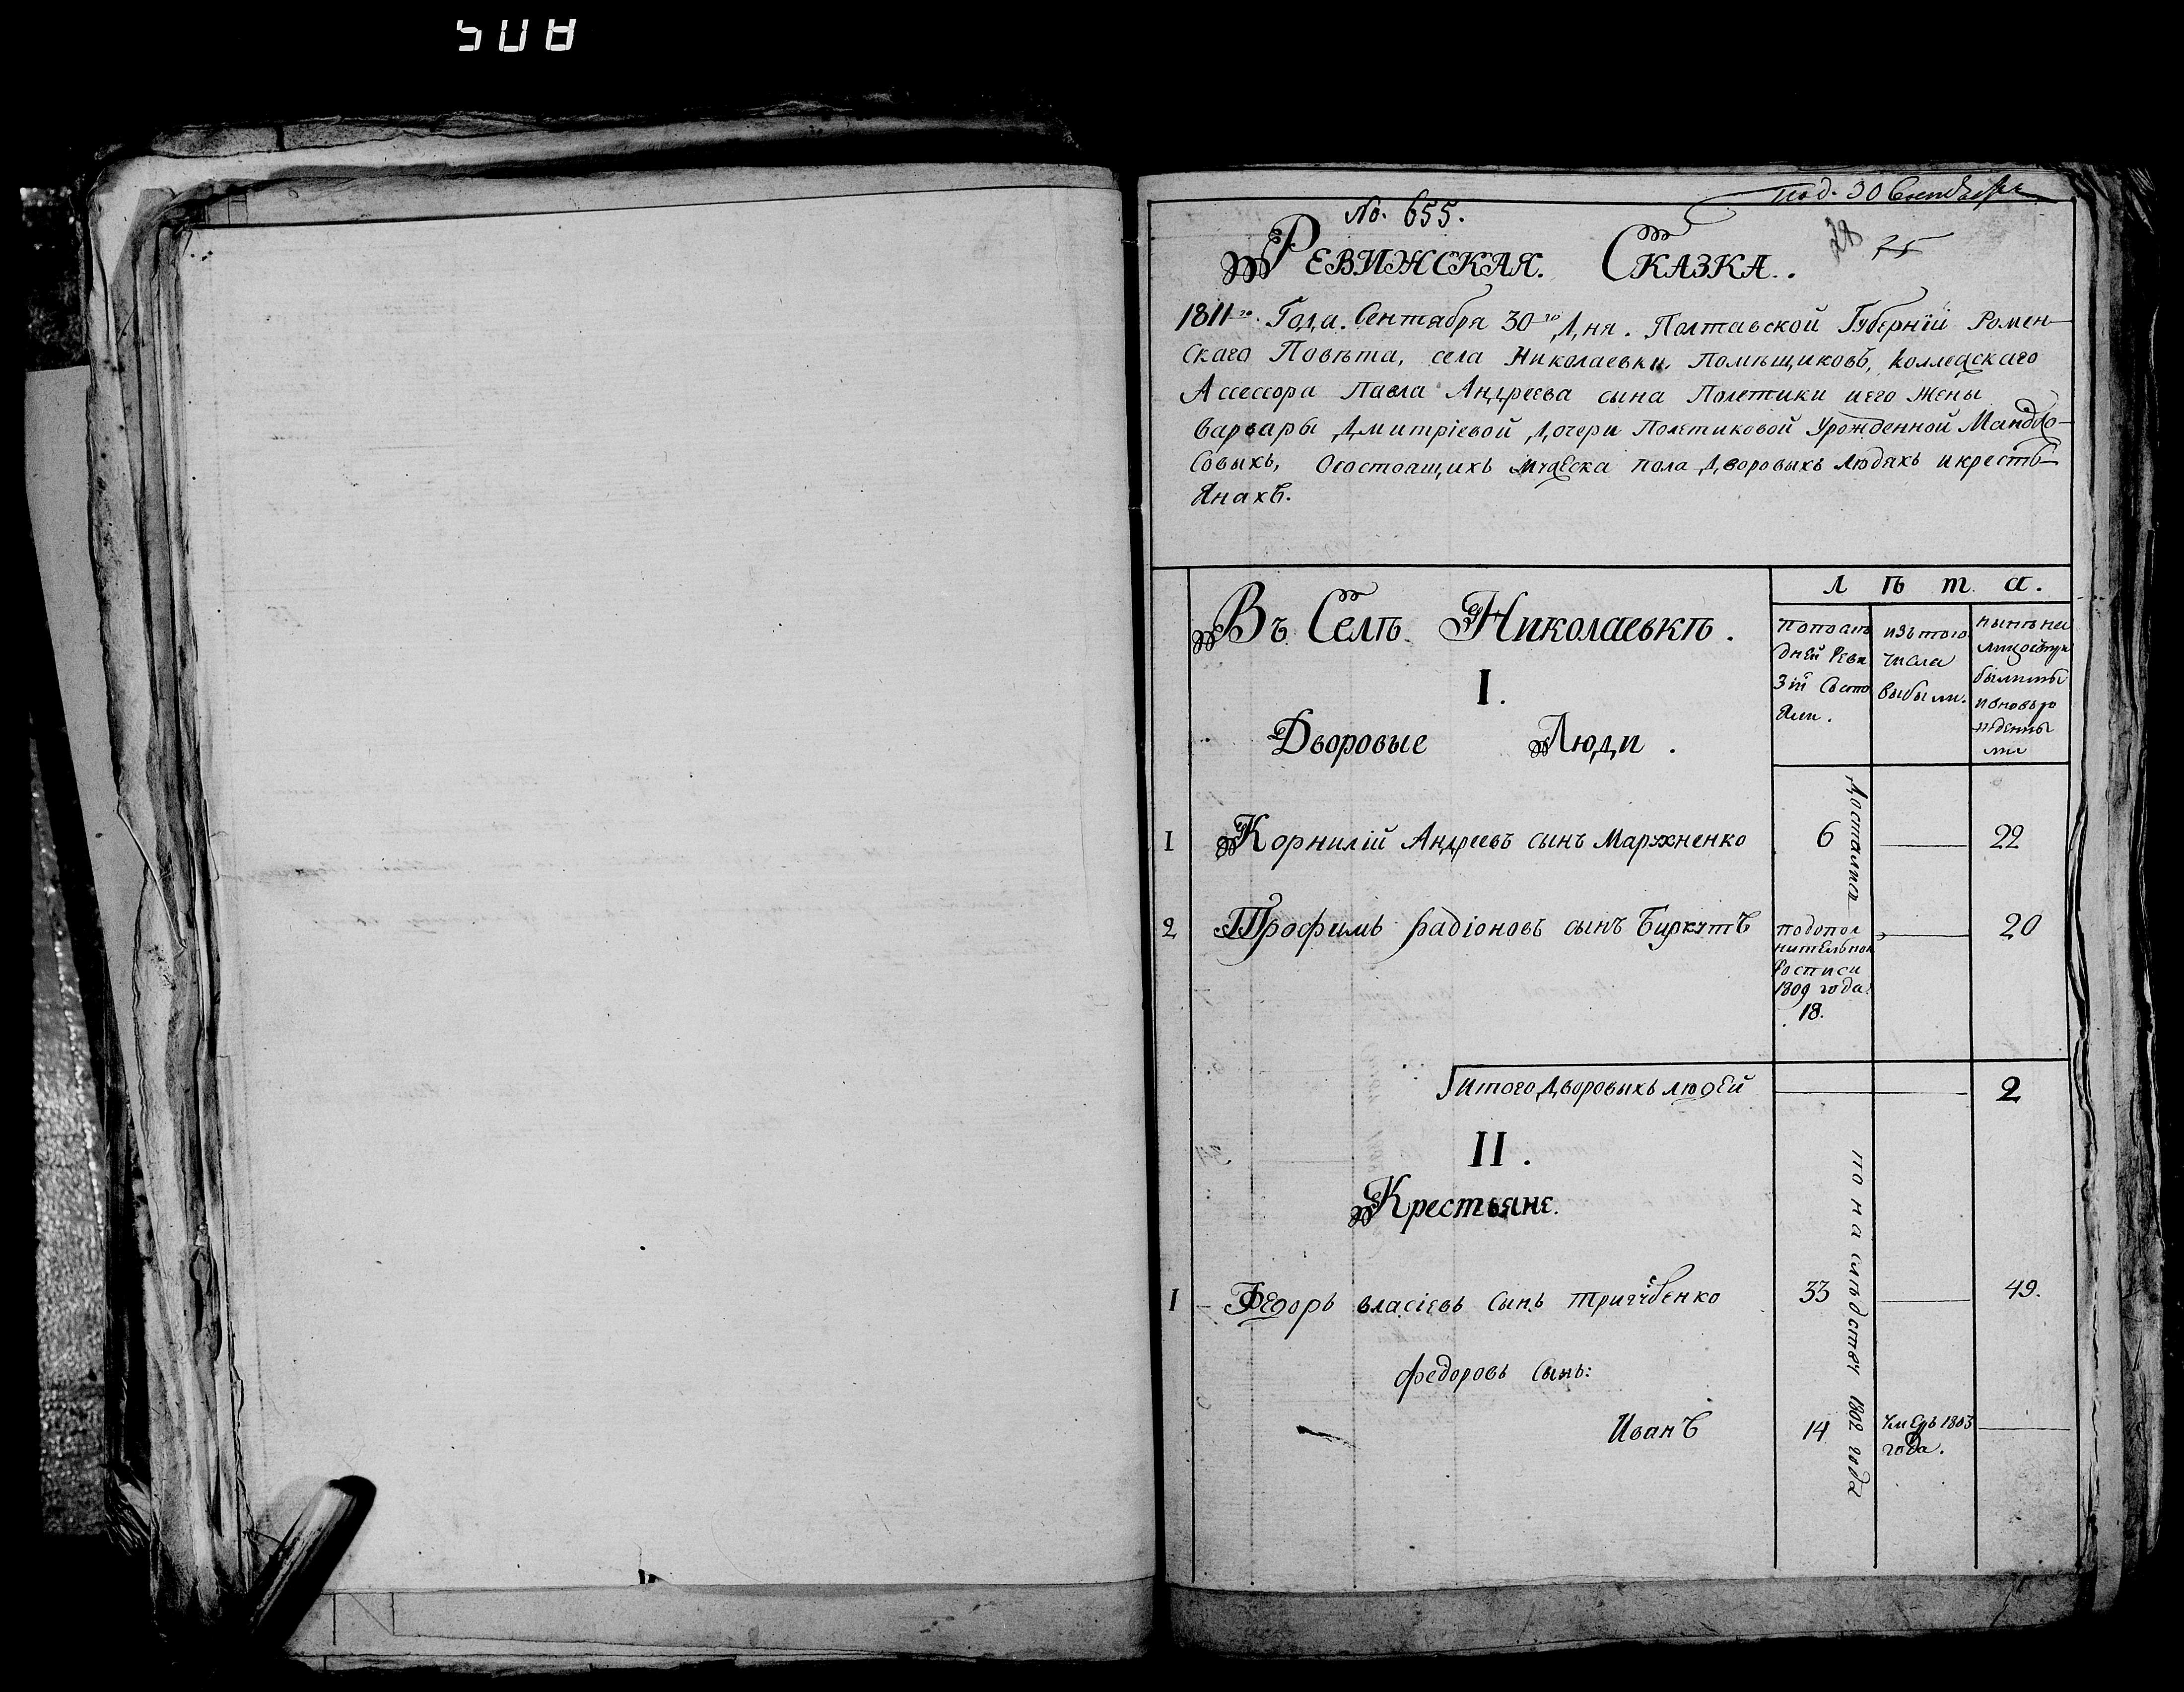 508
под. 30 Сентября
No. 655.
28 25
Ревижская. Сказка.
1811го. Года. Сентября 30го Дня. Полтавской Губернїи Ромен-
скаго Повѣта, села Николаевки. Помѣщиковъ, Коллежскаго
Ассессора Павла Андреева сына Полетики иего Жены
Варвары Дмитріевой Дочери Полетиковой Урожденной
Совыхъ, Осостоящихъ мужеска пола Дворовыхъ людяхъ икресть-
янахъ.
Въ Селѣ Николаевкѣ.
Л ѣ т а.
Попослѣ
дней Реви
зіи Состо
яли.
изътого
числа
выбыли.
нынѣ на
лицо
иновьро
жденны
ми
I.
Дворовые Люди.
1 Корнилій Андреевъ сынъ Марухненко 6 22
Досталися
2 Трофимъ Радіоновъ сынъ Биркутъ 20
подопол
нительной
Росписи
1809 года.
18.
Итого Дворовыхъ людей 2
II.
Крестьяне.
1 Федоръ Власіевъ Сынъ 33 49.
по наслѣдству 1802 года
Федоровъ Сынъ:
Иванъ 14 умеръ 1803
года.